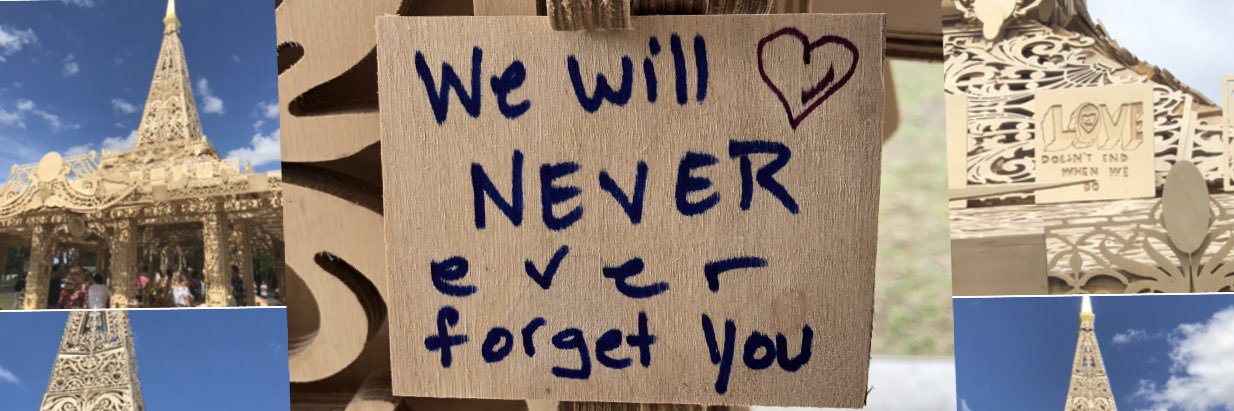 We will
NEVER
ever
forget you
LOVE
DOESN'T END
WHEN WE
DO